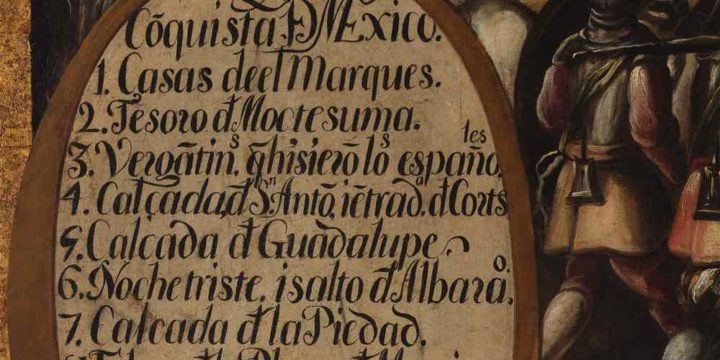 Cõquista đ Mexico.
1. Casas deel Marques.
2. Tesoro đ Moctesuma.
3. Vergãtinˢ, q̃ hisierõ loˢ españoˡᵉˢ
4. Calçada, đ Sⁿ Antõ, iẽtradᵃ, đ Cortˢ
5. Calcada đ Guadalupe
6. Nochetriste, isalto đ Albaraᵒ.
7. Calcada đ la Piedad.